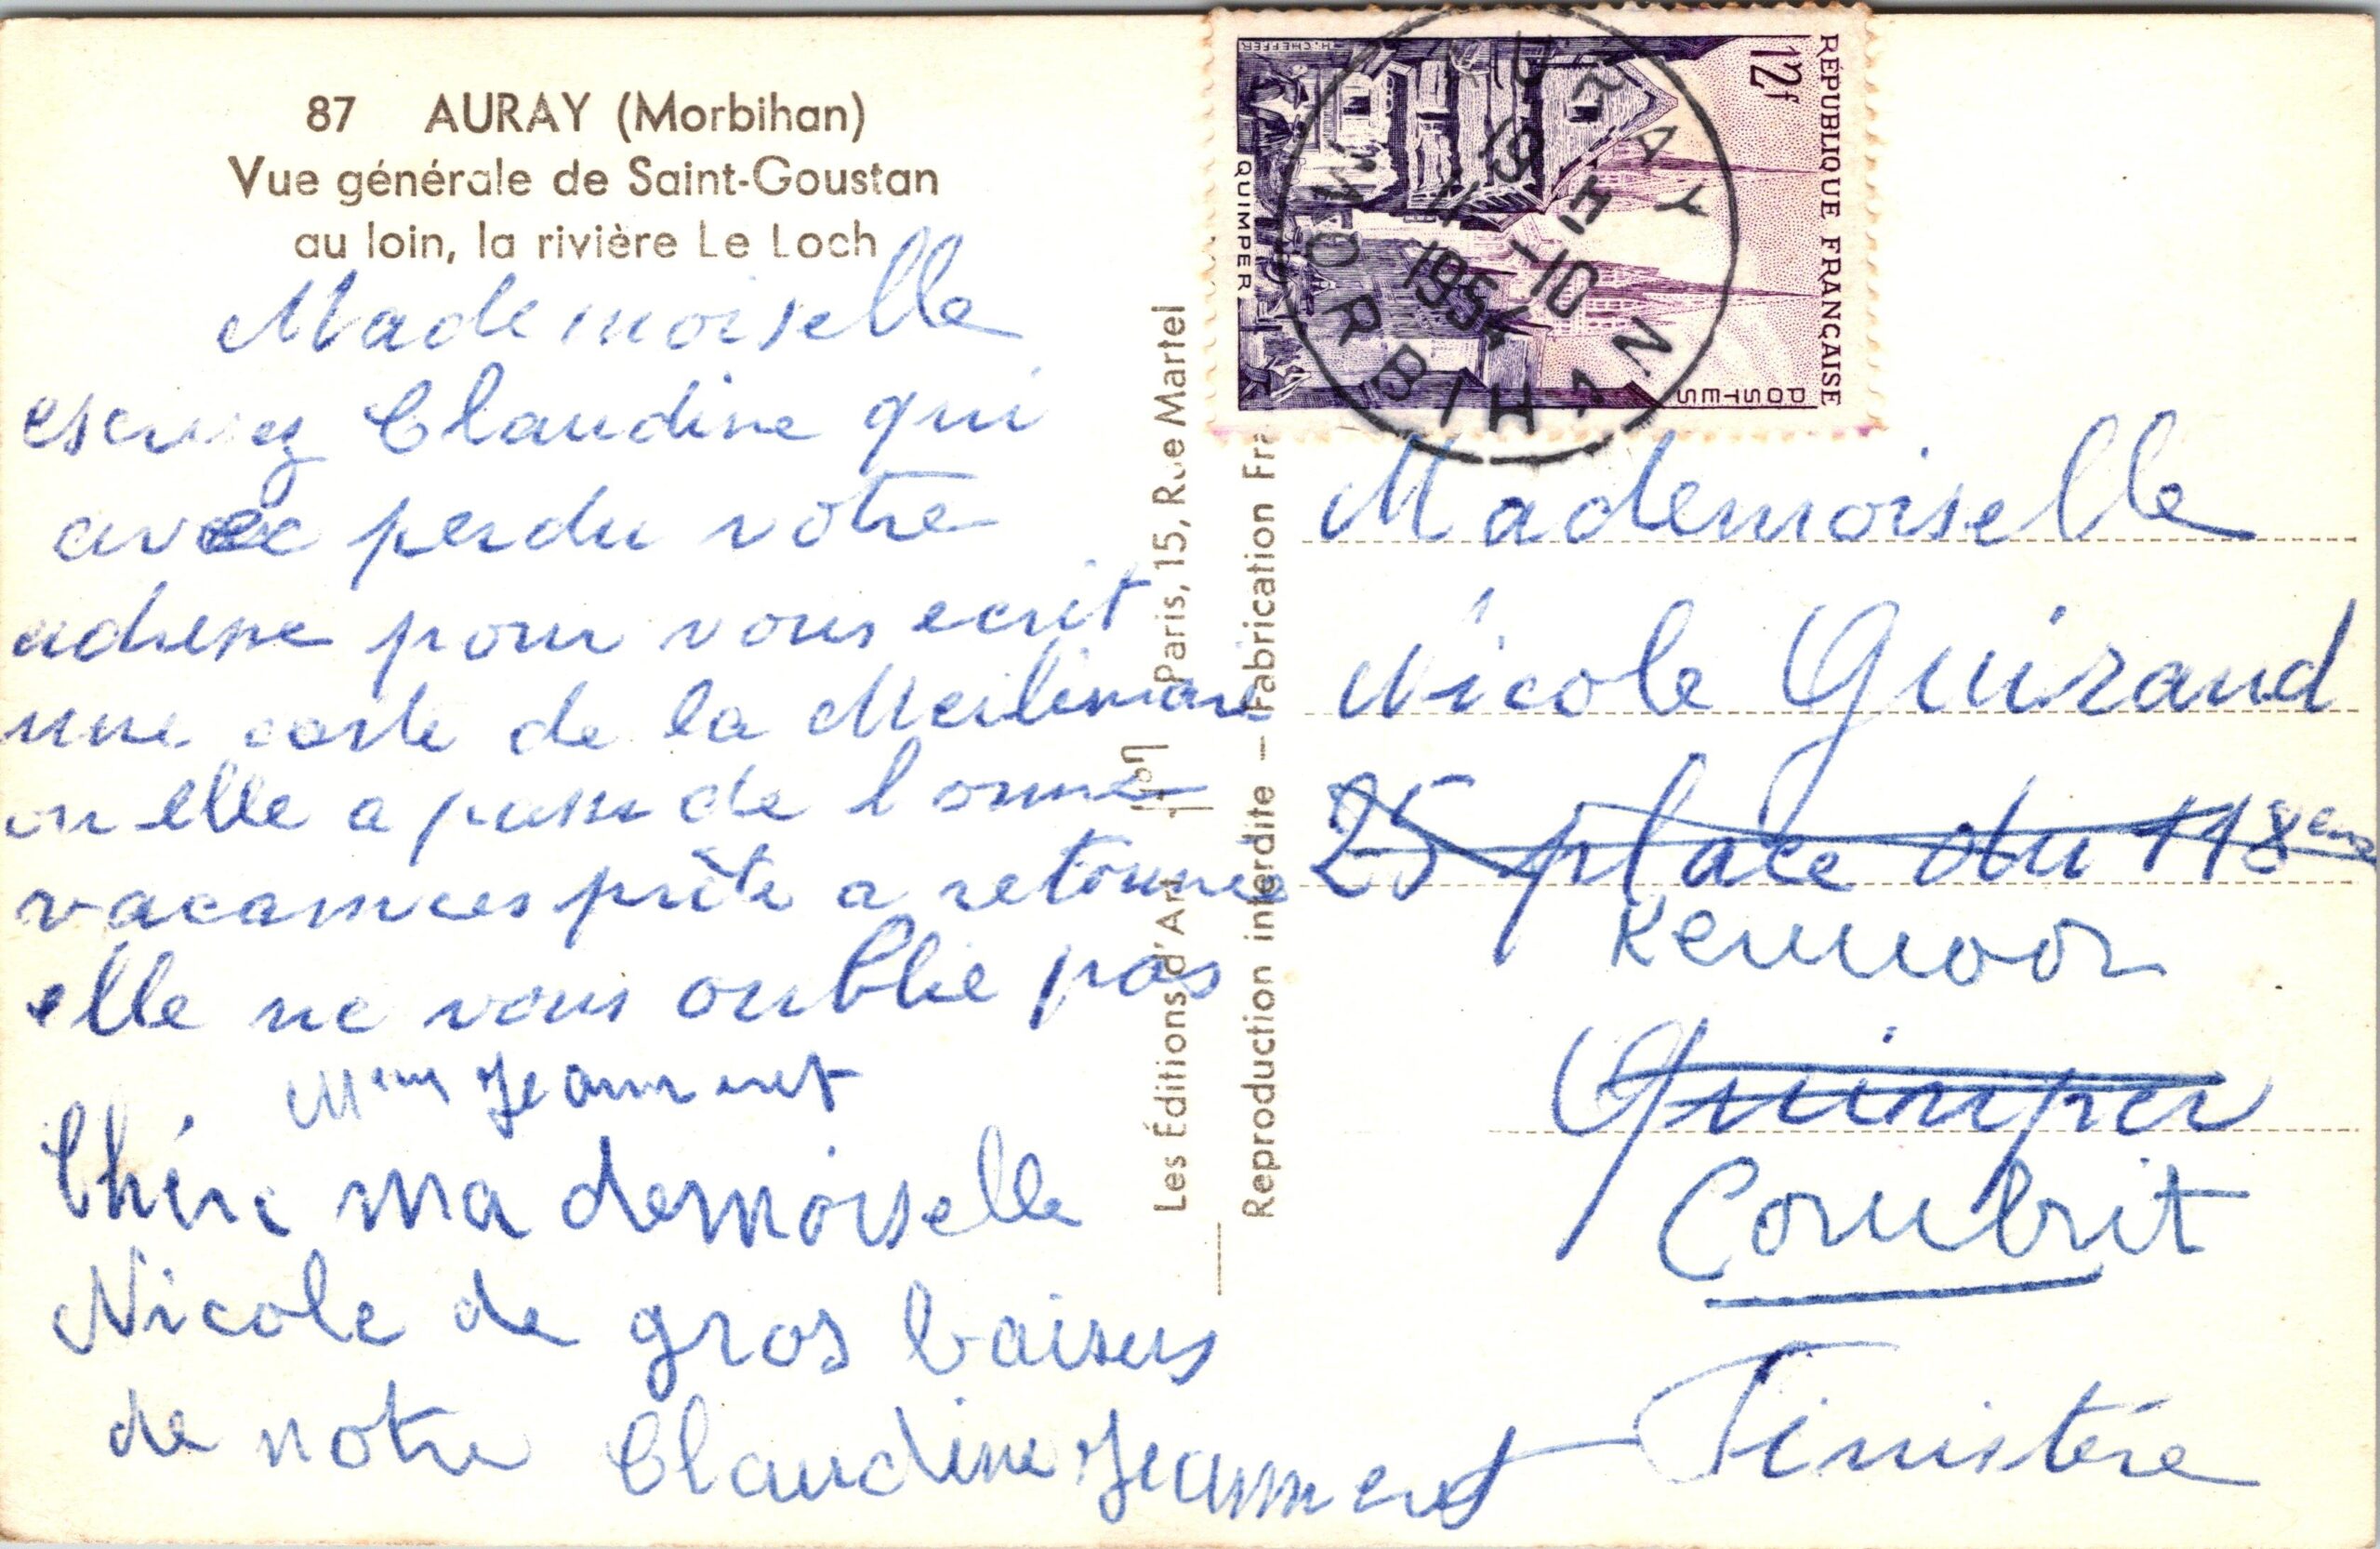 87 AURAY (Morbihan)
Vue générale de Saint-Goustan
au loin, la rivière Le Loch
Mademoiselle
Claudine qui
avec perdu votre
adresse pour vous ecrit
une carte de la
ou elle a passe de bonne
vacances prête a retourner
elle ne vous oublie pas
Mme Jeannet
Chére ma demoiselle
Nicole de gros baisers
de notre Claudine
Les Éditions d'Art Paris, 15, Rue Martel
Reproduction interdite — Fabrication Fra
RÉPUBLIQUE FRANÇAISE
POSTES
12f
QUIMPER
H. CHEFFER
AURAY
19 H
11-10
1954
MORBIHAN
Mademoiselle
Nicole Guiraud
25 place du 118eme
Kermoor
Quimper
Combrit
Finistére